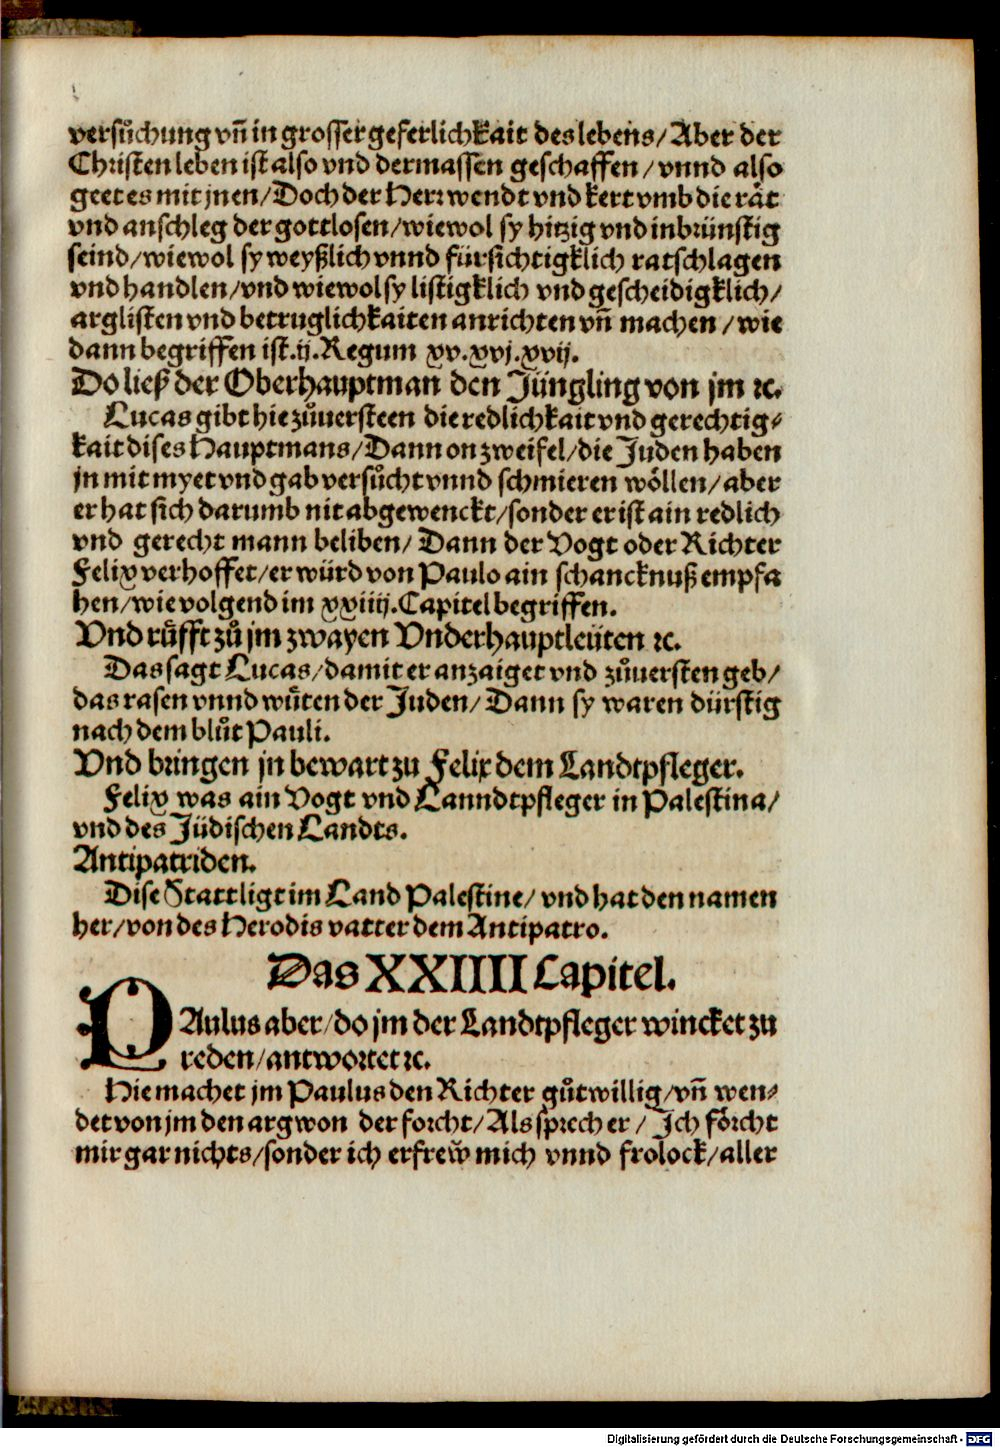 versůchung vñ in grosser geferlichkait des lebens/ Aber der
Christen leben ist also vnd dermassen geschaffen/ vnnd also
geet es mit jnen/ Doch der Herr wendt vnd kert vmb die rät
vnd anschleg der gottlosen/ wiewol sy hitzig vnd inbrünstig
seind/ wiewol sy weyßlich vnnd fürsichtigklich ratschlagen
vnd handlen/ vnd wiewol sy listigklich vnd gescheidigklich/
arglisten vnd betruglichkaiten anrichten vñ machen/ wie
dann begriffen ist .ij. Regum xv. xvj. xvij.
Do ließ der Oberhauptman den Jüngling von jm ꝛc.
Lucas gibt hie zůuersteen die redlichkait vnd gerechtig⸗
kait dises Hauptmans/ Dann on zweifel/ die Juden haben
jn mit myet vnd gab versůcht vnnd schmieren wöllen/ aber
er hat sich darumb nit abgewenckt/ sonder er ist ain redlich
vnd gerecht mann beliben/ Dann der Vogt oder Richter
Felix verhoffet/ er würd von Paulo ain schancknuß empfa
hen/ wie volgend im xxiiij. Capitel begriffen.
Vnd růfft zů jm zwayen Vnderhauptleüten ꝛc.
Das sagt Lucas/ damit er anzaiget vnd zůuersten geb/
das rasen vnnd wůten der Juden/ Dann sy waren dürstig
nach dem blůt Pauli.
Vnd bringen jn bewart zu Felix dem Landtpfleger.
Felix was ain Vogt vnd Lanndtpfleger in Palestina/
vnd des Jüdischen Landts.
Antipatriden.
Dise Statt ligt im Land Palestine/ vnd hat den namen
her/ von des Herodis vatter dem Antipatro.
Das XXIIII Capitel.
PAulus aber/ do jm der Landtpfleger wincket zu
reden/ antwortet ꝛc.
Hie machet jm Paulus den Richter gůtwillig/ vñ wen⸗
det von jm den argwon der forcht/ Als sprech er/ Jch förcht
mir gar nichts/ sonder ich erfrew mich vnnd frolock/ aller
Digitalisierung gefördert durch die Deutsche Forschungsgemeinschaft - DFG